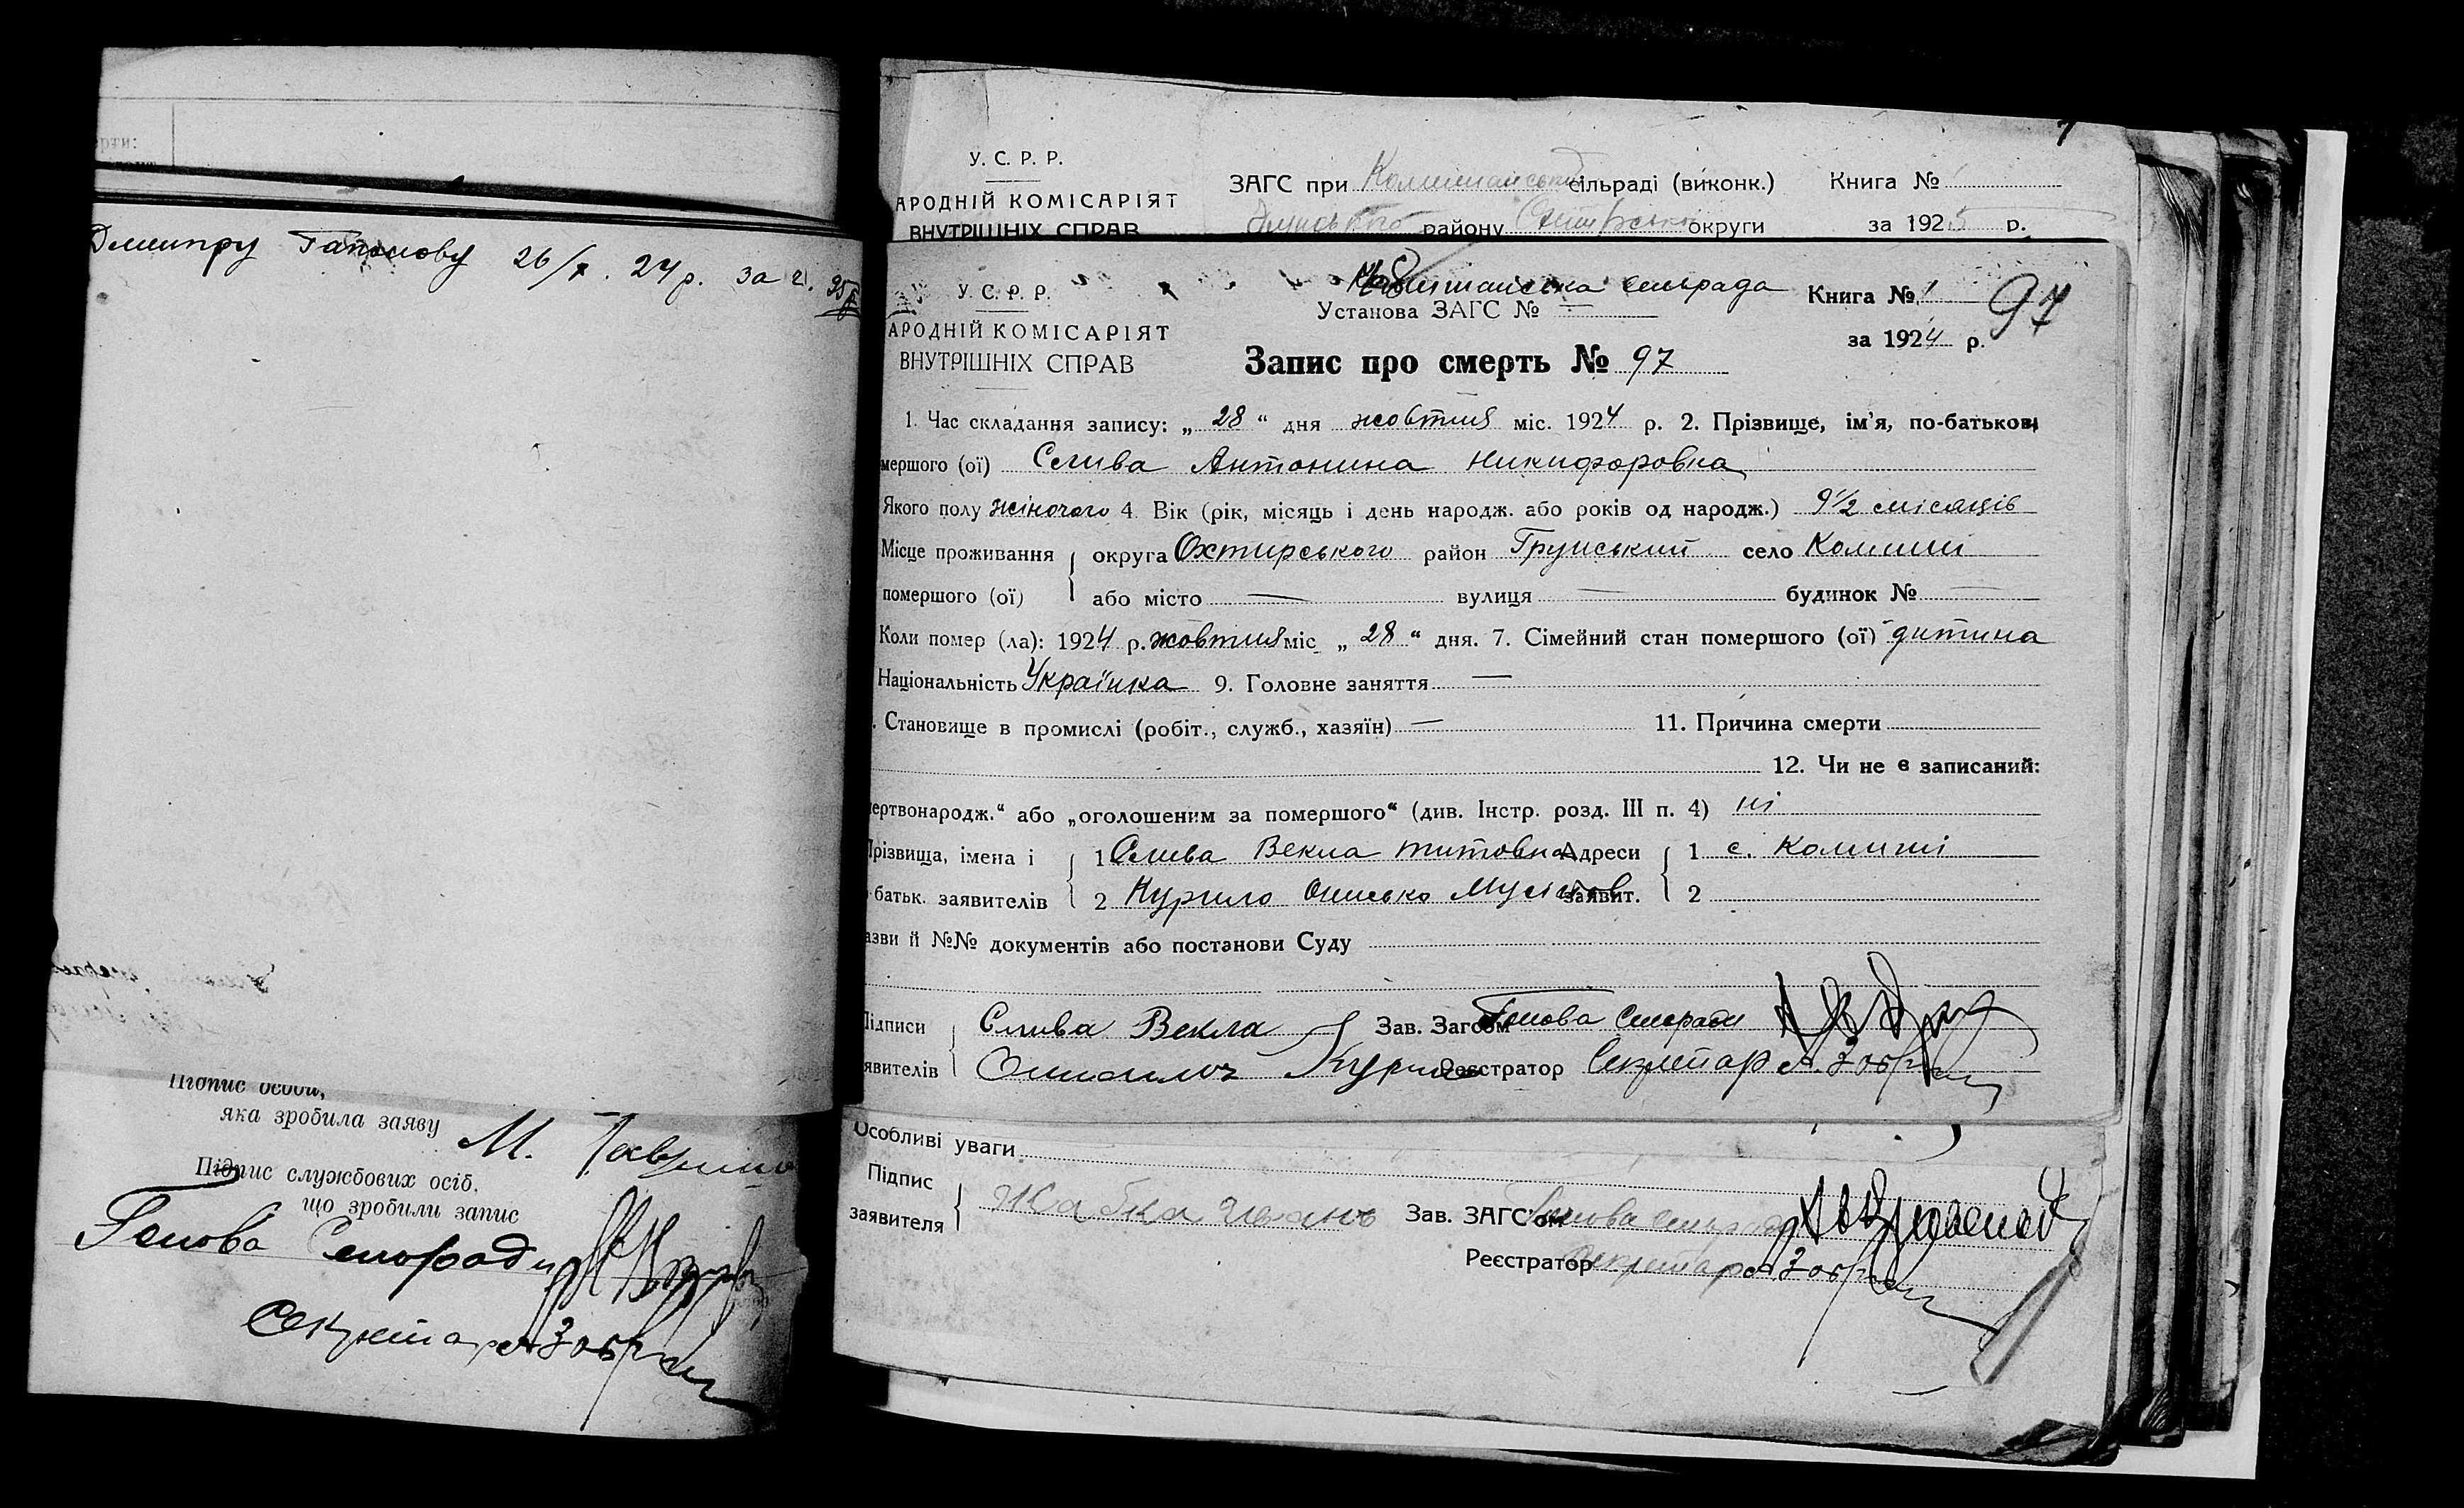 Дмитру Гапонову 26/X. 24 р. за
Підпис особи,
яка зробила заяву М.
Підпис службових осіб,
що зробили запис
Голова Сільради
Секретар
У. С. Р. Р.
АРОДНІЙ КОМІСАРІЯТ
ВНУТРІШНІХ СПРАВ
ЗАГС при сільраді (виконк.) Книга №
району округи за 1925 р.
У. С. Р. Р.
АРОДНІЙ КОМІСАРІЯТ
ВНУТРІШНІХ СПРАВ
сільрада
Установа ЗАГС № —
Книга № 1 97
за 1924 р.
Запис про смерть № 97
1. Час складання запису: „ 28 “ дня жовтня міс. 1924 р. 2. Прізвище, ім'я, по-батькові
мершого (ої) Слива Антонина Никифоровна
Якого полу жіночого 4. Вік (рік, місяць і день народж. або років од народж.) 9½ місяців
Місце проживання округа Охтирського район Грунський село Комиші
помершого (ої) або місто — вулиця — будинок № —
Коли помер (ла): 1924 р. жовтня міс „ 28 “ дня. 7. Сімейний стан помершого (ої) дитина
Національність Українка 9. Головне заняття —
. Становище в промислі (робіт., служб., хазяїн) — 11. Причина смерти
12. Чи не є записаний:
ертвонародж.“ або „оголошеним за помершого“ (див. Інстр. розд. III п. 4) ні
Прізвища, імена і 1 Слива Векла Титовна Адреси 1 с. Комиші
батьк. заявителів 2 Курило заявит. 2
азви й №№ документів або постанови Суду
Підписи Слива Векла Зав. Загсом Голова Сільради
явителів Реєстратор Секретар
Особливі уваги
Підпис
заявителя Жабка Иванъ Зав. ЗАГСом Голова сільради
Реєстратор Секретар